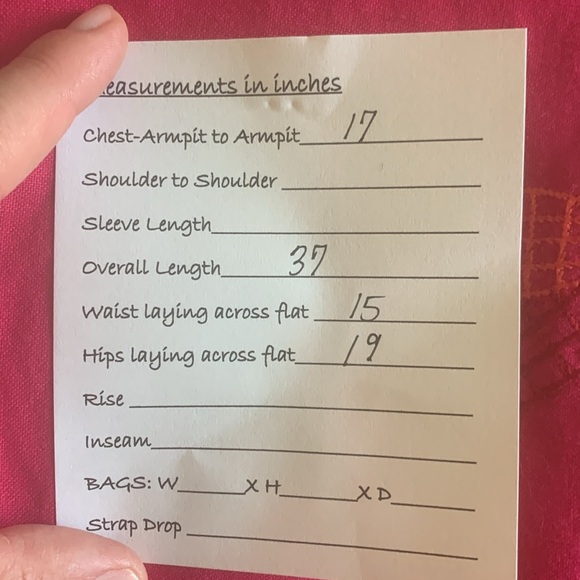 easurements in inches
Chest-Armpit to Armpit 17
Shoulder to Shoulder
Sleeve Length
Overall Length 37
Waist laying across flat 15
Hips laying across flat 19
Rise
Inseam
BAGS: W X H X D
Strap Drop